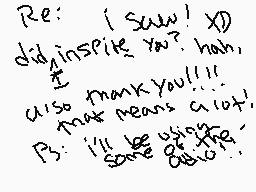 Re: i saw! XD
did I inspire you? hah,
also thank you!!!!
that means a lot!
Ps: i'll be using
some of the
audio!